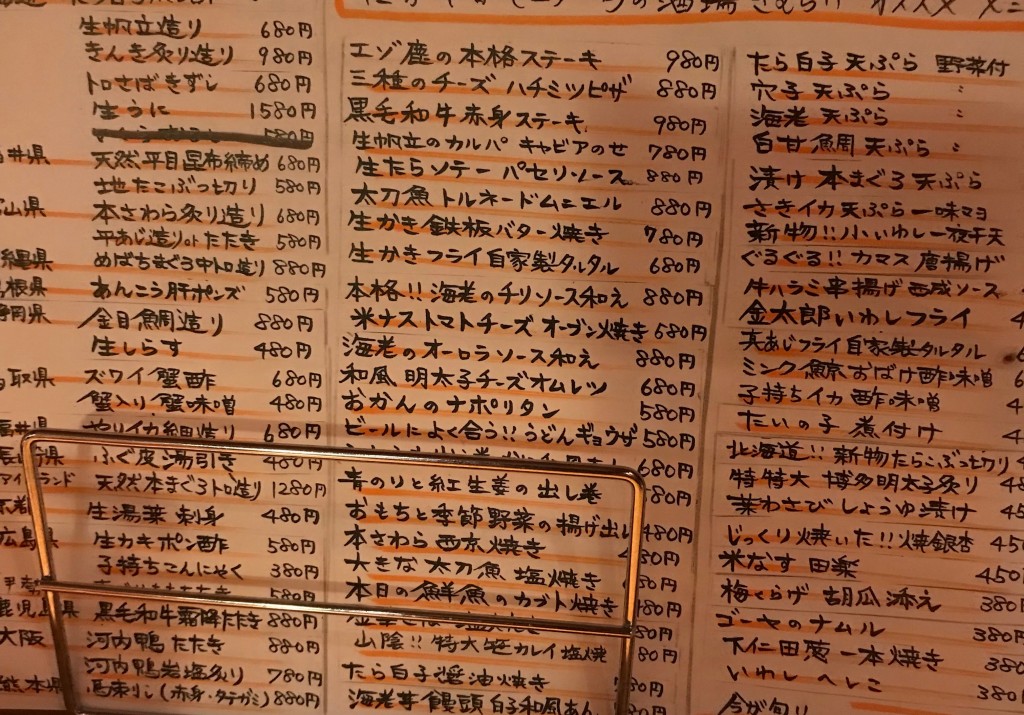 生帆立造り 680円
きんき炙り造り 980円
トロさばきずし 680円
生うに 1580円
580円
井県 天然平目昆布締め 680円
地たこぶっ切り 580円
山県 本さわら炙り造り 680円
平あじ造りorたたき 580円
縄県 めばちまぐろ中トロ造り 880円
根県 あんこう肝ポンズ 580円
岡県 金目鯛造り 880円
生しらす 480円
取県 ズワイ蟹酢 680円
蟹入り蟹味噌 480円
井県 やりイカ細造り 680円
県 ふぐ皮湯引き 480円
アイルランド 天然本まぐろトロ造り 1280円
生湯葉刺身 480円
広島県 生カキポン酢 580円
子持ちこんにゃく 380円
鹿児島県 黒毛和牛霜降たたき 880円
大阪 河内鴨たたき 880円
河内鴨岩塩炙り 780円
熊本県 馬刺し(赤身・タテガミ) 880円
エゾ鹿の本格ステーキ 980円
三種のチーズ ハチミツピザ 880円
黒毛和牛赤身ステーキ 980円
生帆立のカルパ キャビアのせ 780円
生たらソテー パセリソース 880円
太刀魚トルネードムニエル 880円
生かき鉄板バター焼き 780円
生かきフライ自家製タルタル 680円
本格!!海老のチリソース和え 880円
米ナストマトチーズオーブン焼き 580円
海老のオーロラソース和え 880円
和風明太子チーズオムレツ 680円
おかんのナポリタン 580円
ビールによく合う!!うどんギョウザ 580円
680円
青のりと紅生姜の出し巻 580円
おもちと季節野菜の揚げ出し 480円
本さわら西京焼き
大きな太刀魚塩焼き
本日の鮮魚のカブト焼き
山陰!!特大笹カレイ塩焼
たら白子醤油焼き
海老芋饅頭白子和風あん
たら白子天ぷら 野菜付
穴子天ぷら 〃
海老天ぷら 〃
白甘鯛天ぷら 〃
漬け本まぐろ天ぷら
さきイカ天ぷら一味マヨ
新物!!小いわし一夜干天
ぐるぐる!!カマス唐揚げ
牛ハラミ串揚げ西成ソース
金太郎いわしフライ
真あじフライ自家製タルタル
ミンク鯨おばけ酢味噌
子持ちイカ酢味噌
たいの子煮付け
北海道!!新物たらこぶっ切り
特特大 博多明太子炙り
葉わさびしょうゆ漬け
じっくり焼いた!!焼銀杏 450
米なす田楽 450円
梅くらげ胡瓜添え 380
ゴーヤのナムル 380円
下仁田葱一本焼き 380
いわしへしこ 380円
今が旬!!